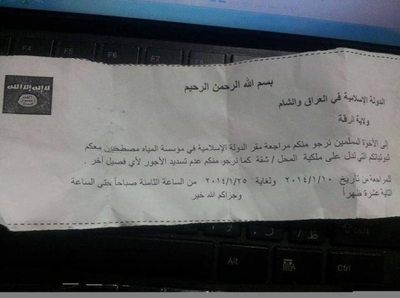 لا إله إلا الله
بسم الله الرحمن الرحيم
الدولة الإسلامية في العراق والشام
ولاية الرقة
إلى الأخوة المسلمين نرجو منكم مراجعة مقر الدولة الإسلامية في مؤسسة المياه مصطحبين معكم
ثبوتياتكم التي تدل على ملكية المحل / شقة كما نرجو منكم عدم تسديد الأجور لأي فصيل آخر .
للمراجعة من تاريخ ٢٠١٤/١/١٠ ولغاية ٢٠١٤/١/٢٥ من الساعة الثامنة صباحاً حتى الساعة
الثانية عشرة ظهراً
وجزاكم الله خير
F4
Alt
Ctrl